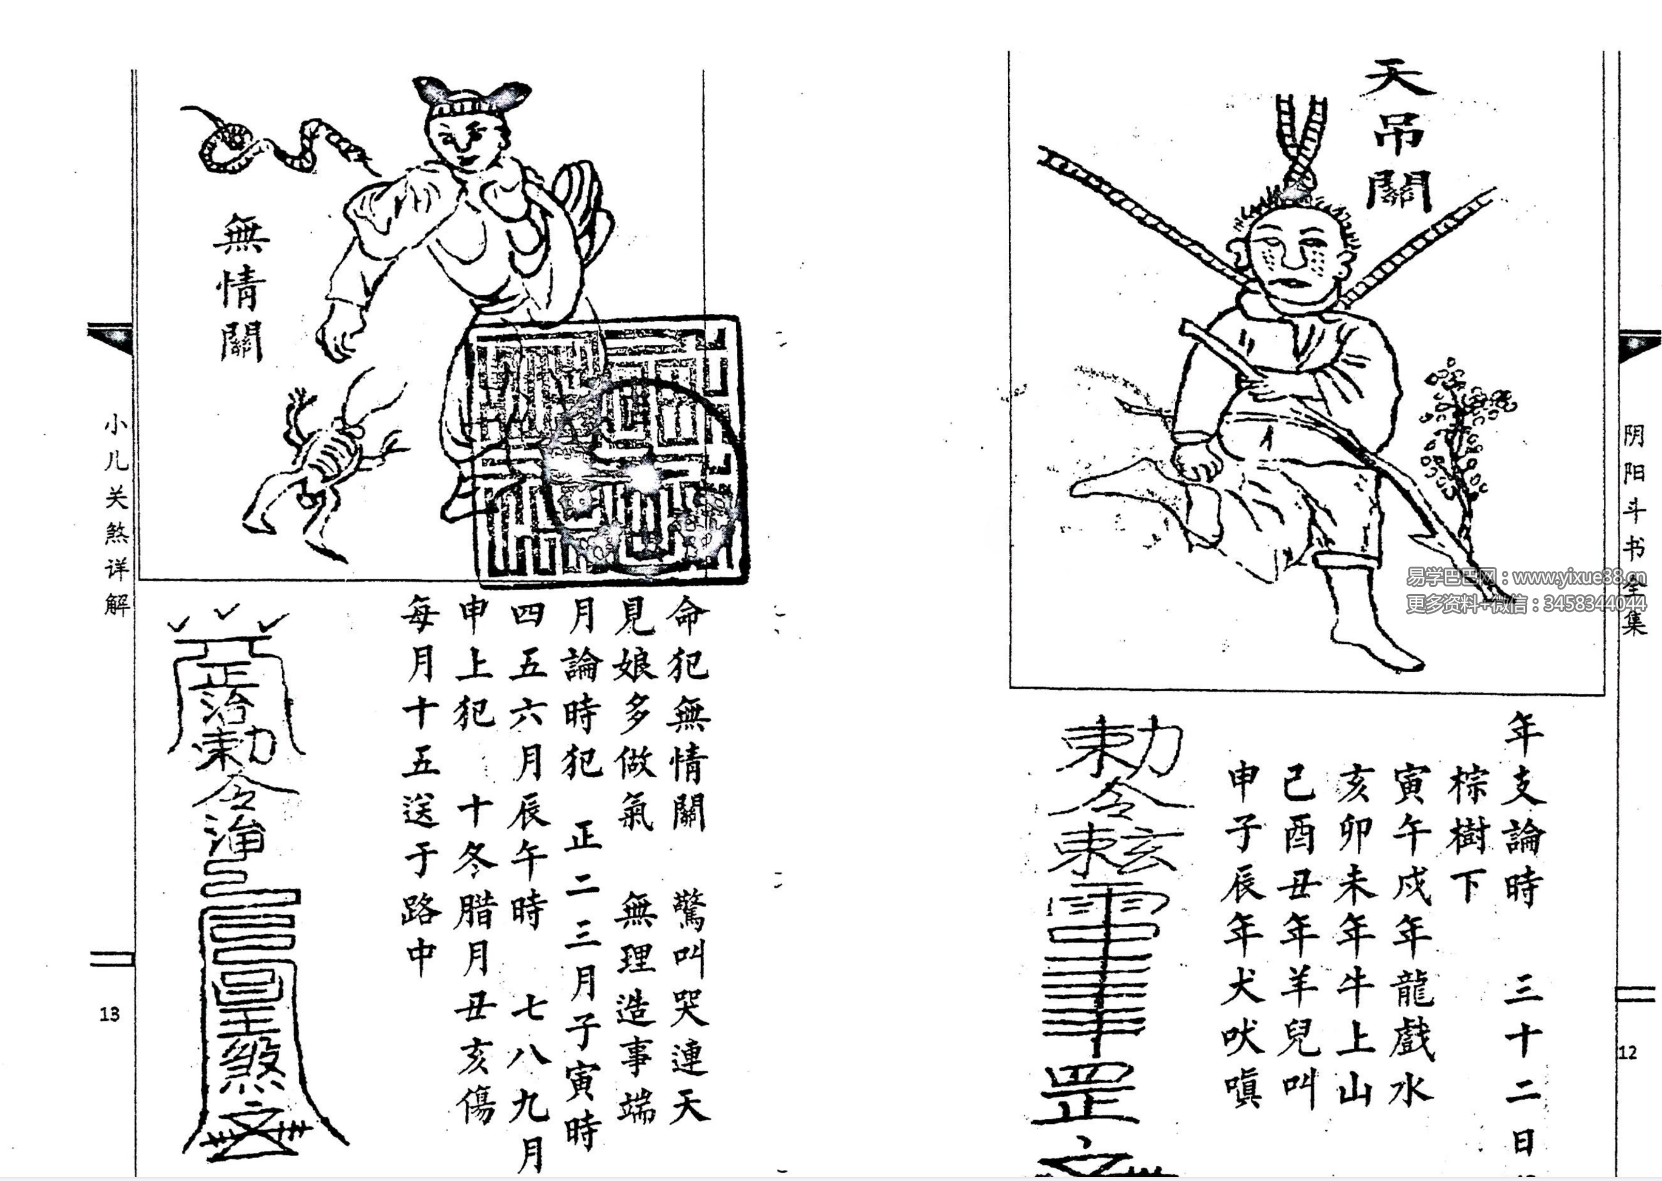 天吊關
年支論時 三十二日
棕樹下
寅午戌年龍戲水
亥卯未年牛上山
己酉丑年羊兒叫
申子辰年犬吠嗔
勅令
罡
阴阳斗书全集
12
易学巴巴网：www.yixue88.cn
更多资料+微信：3458344044
無情關
命犯無情關 驚叫哭連天
見娘多做氣 無理造事端
月論時犯 正二三月子寅時
四五六月辰午時 七八九月
申上犯 十冬腊月丑亥傷
每月十五送于路中
正治勅令
煞
小儿关煞详解
13